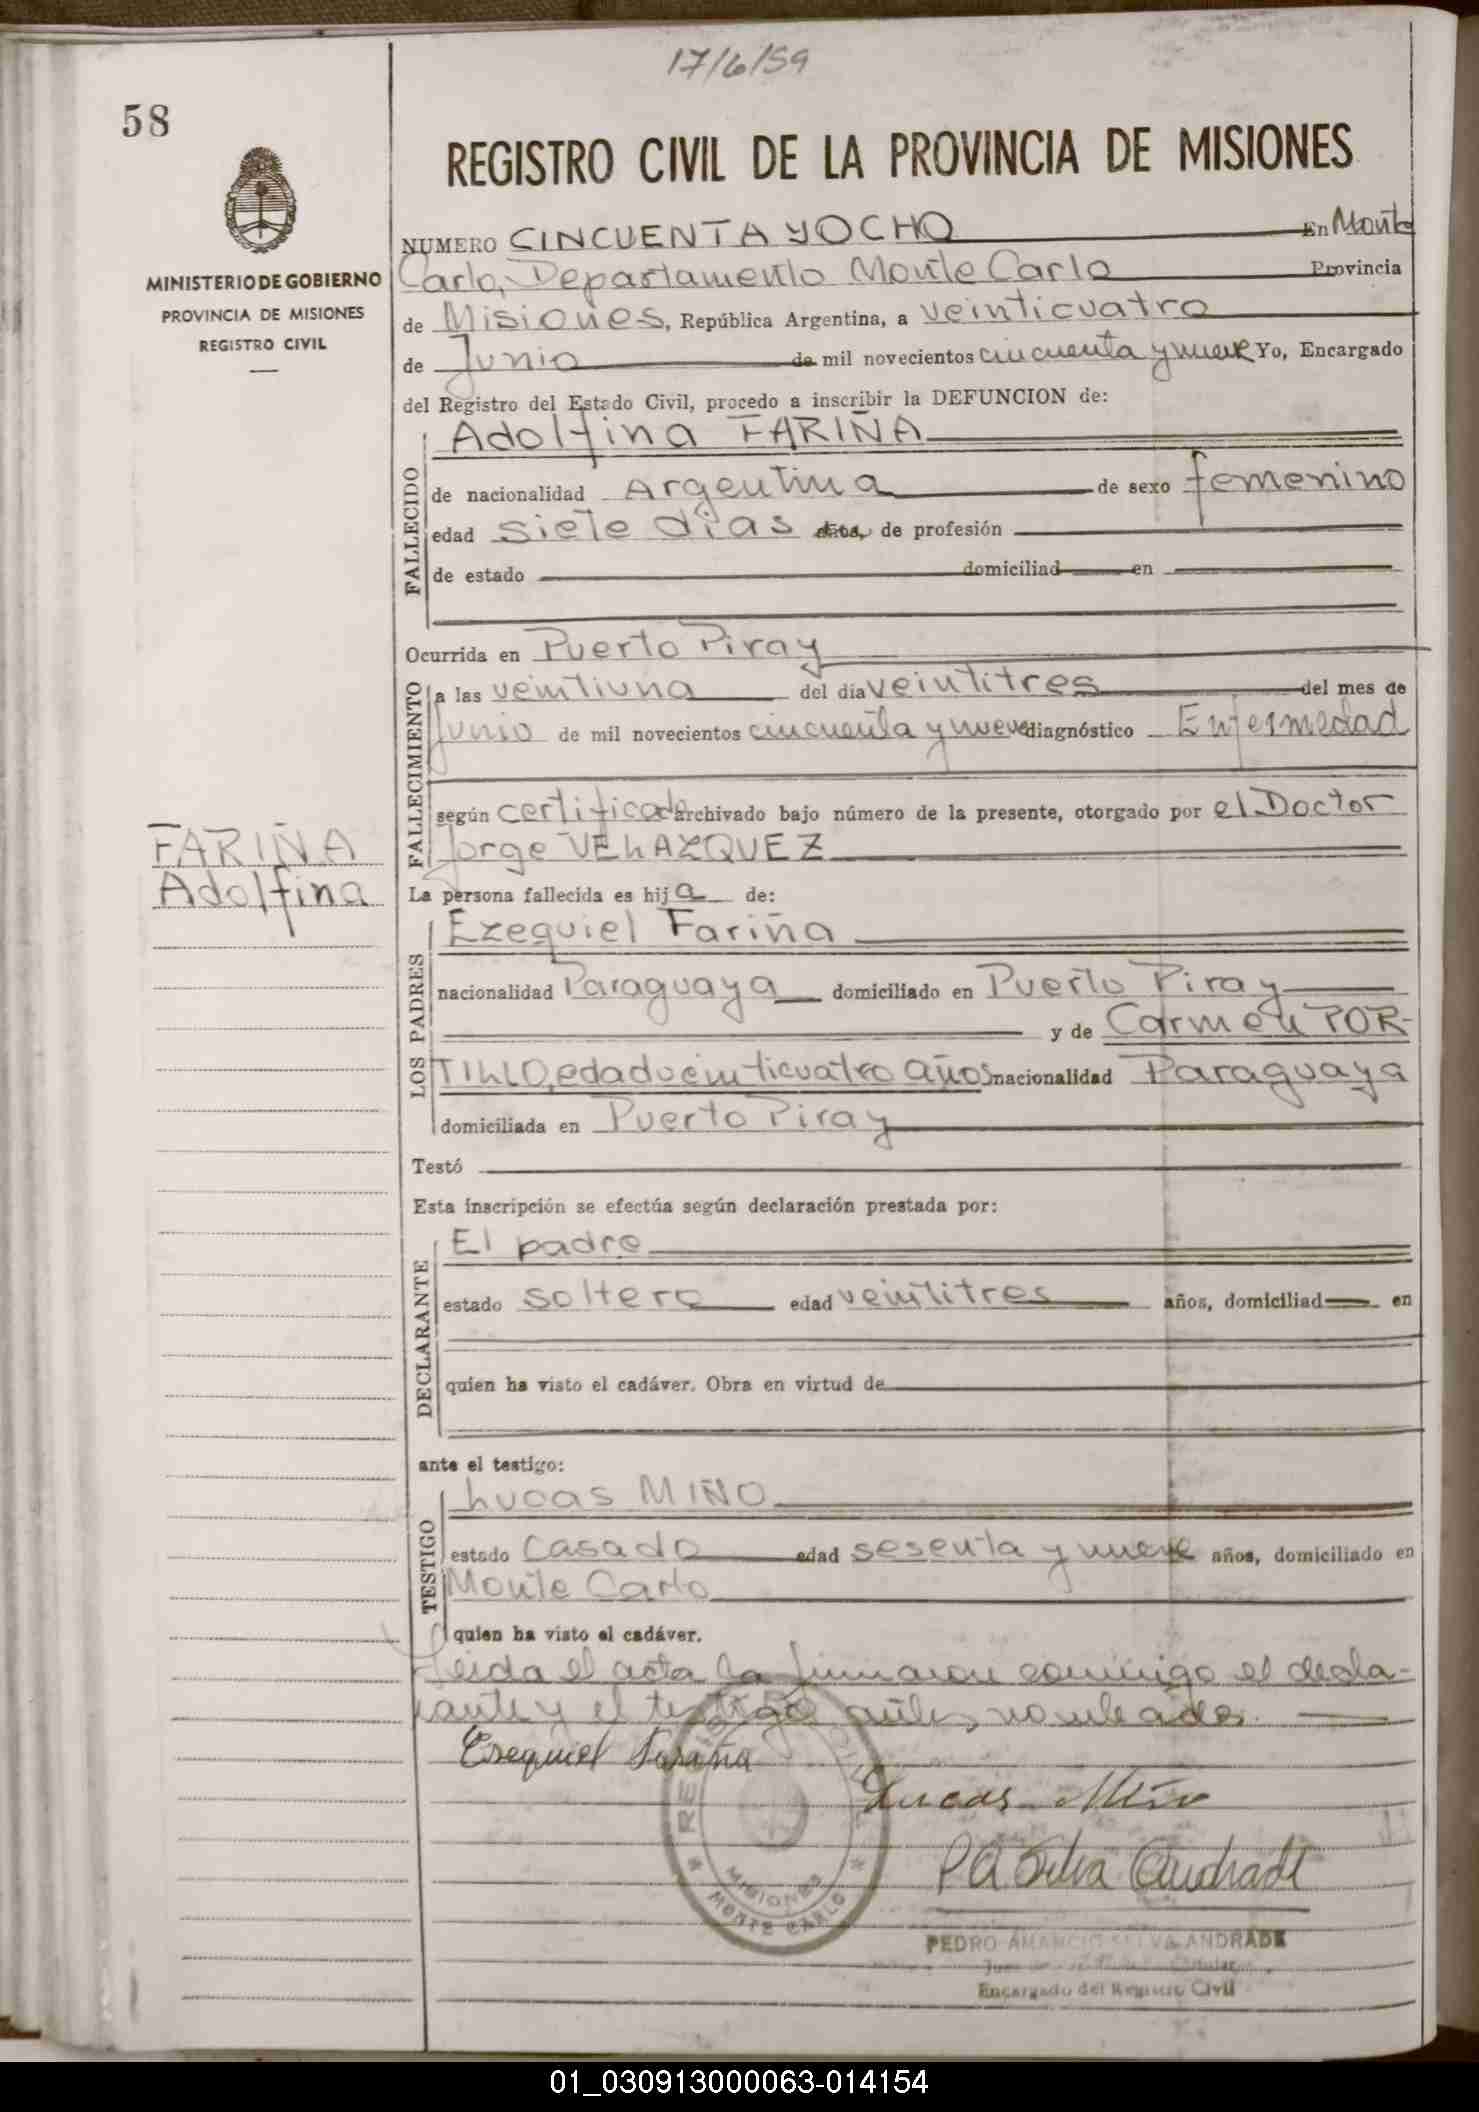 17/6/59
58
REGISTRO CIVIL DE LA PROVINCIA DE MISIONES
MINISTERIO DE GOBIERNO
PROVINCIA DE MISIONES
REGISTRO CIVIL
NUMERO CINCUENTA Y OCHO En Monte
Carlo, Departamento Monte Carlo Provincia
de Misiones, República Argentina, a veinticuatro
de Junio de mil novecientos cincuenta y nueve Yo, Encargado
del Registro del Estado Civil, procedo a inscribir la DEFUNCION de:
FALLECIDO
Adolfina FARIÑA
de nacionalidad Argentina de sexo femenino
edad siete días años, de profesión
de estado domiciliad en
Ocurrida en Puerto Piray
FALLECIMIENTO
a las veintiuna del día veintitres del mes de
Junio de mil novecientos cincuenta y nueve diagnóstico Enfermedad
según certificado archivado bajo número de la presente, otorgado por el Doctor
Jorge VELAZQUEZ
FARIÑA
Adolfina
La persona fallecida es hija de:
LOS PADRES
Ezequiel Fariña
nacionalidad Paraguaya domiciliado en Puerto Piray
y de Carmen POR-
TILLO, edad veinticuatro años nacionalidad Paraguaya
domiciliada en Puerto Piray
Testó
Esta inscripción se efectúa según declaración prestada por:
DECLARANTE
El padre
estado soltero edad veintitres años, domiciliad en
quien ha visto el cadáver. Obra en virtud de
ante el testigo:
TESTIGO
Lucas MIÑO
estado casado edad sesenta y nueve años, domiciliado en
Monte Carlo
quien ha visto el cadáver.
Leida el acta la firmaron conmigo el decla-
rante y el testigo antes nombrados.
Ezequiel Fariña
Lucas Miño
P A Silva Andrade
MISIONES
MONTE CARLO
PEDRO AMANCIO SILVA ANDRADE
Encargado del Registro Civil
01_030913000063-014154